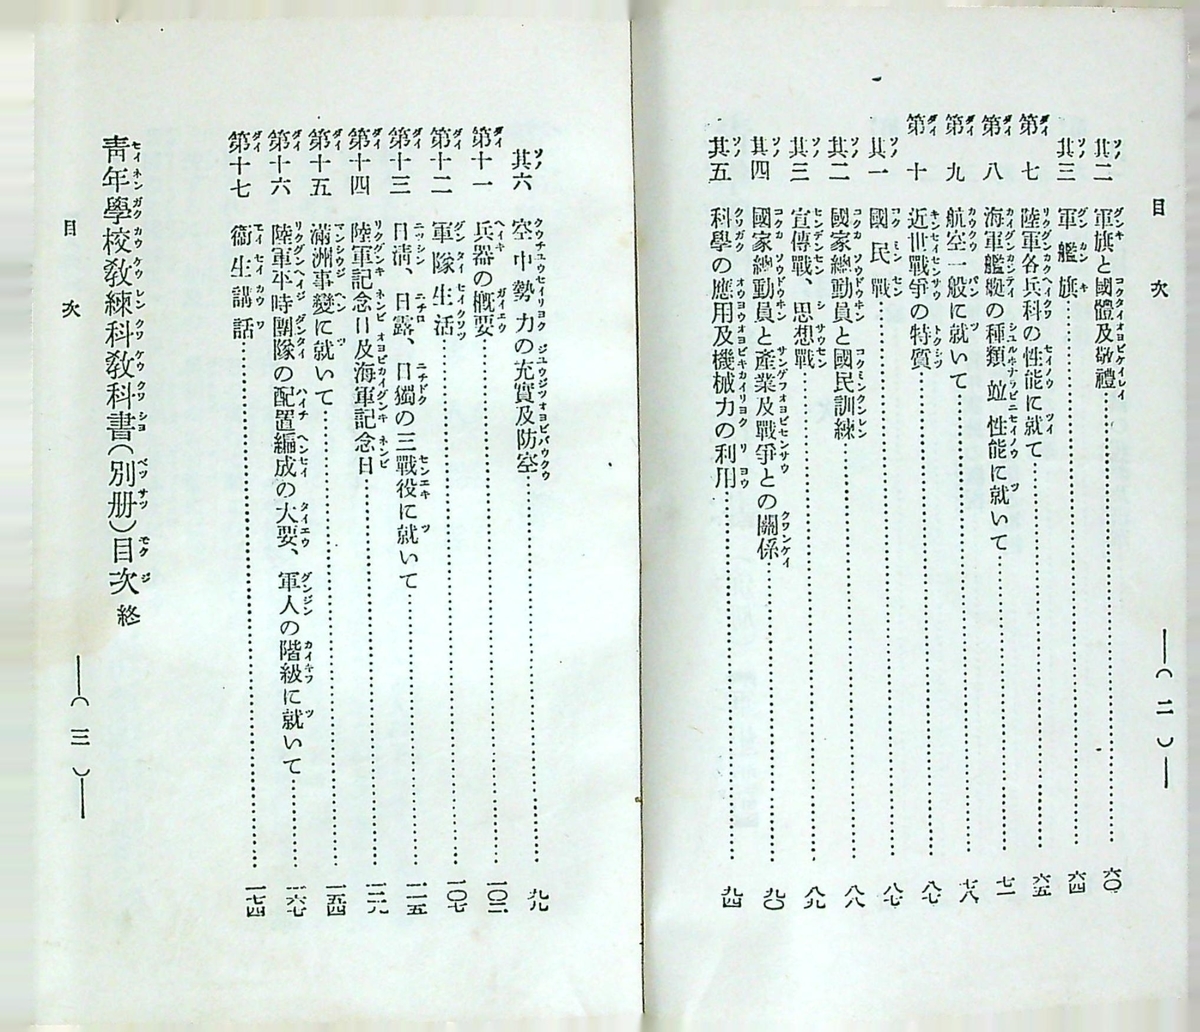 目次
其二 軍旗と國體及敬禮 六〇
其三 軍艦旗 六四
第七 陸軍各兵科の性能に就て 六五
第八 海軍艦艇の種類竝性能に就いて 七一
第九 航空一般に就いて 七八
第十 近世戰爭の特質 八七
其一 國民戰 八七
其二 國家總動員と國民訓練 八八
其三 宣傳戰、思想戰 八九
其四 國家總動員と產業及戰爭との關係 九〇
其五 科學の應用及機械力の利用 九四
(二)
其六 空中勢力の充實及防空 九九
第十一 兵器の概要 一〇二
第十二 軍隊生活 一〇七
第十三 日淸、日露、日獨の三戰役に就いて 一一五
第十四 陸軍記念日及海軍記念日 一二九
第十五 滿洲事變に就いて 一五四
第十六 陸軍平時團隊の配置編成の大要、軍人の階級に就いて 一六七
第十七 衞生講話 一七四
靑年學校敎練科敎科書(別册)目次終
目次
(三)